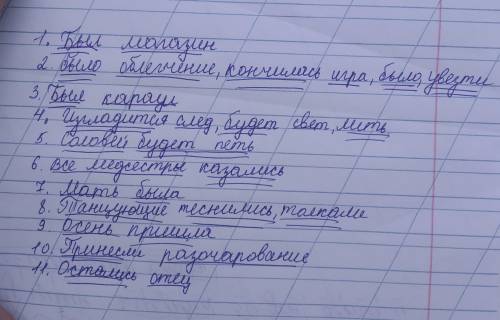 1. Был магазин
2. было облегчение, кончилась игра, было, увезти
3. Был караул
4. Изгладится след, будет свет, лить
5. Соловей будет петь
6. все медсестры казались
7. Мать была
8. Танцующие теснились, толкали
9. Осень пришла
10. Принесли разочарование
11. Остались отец